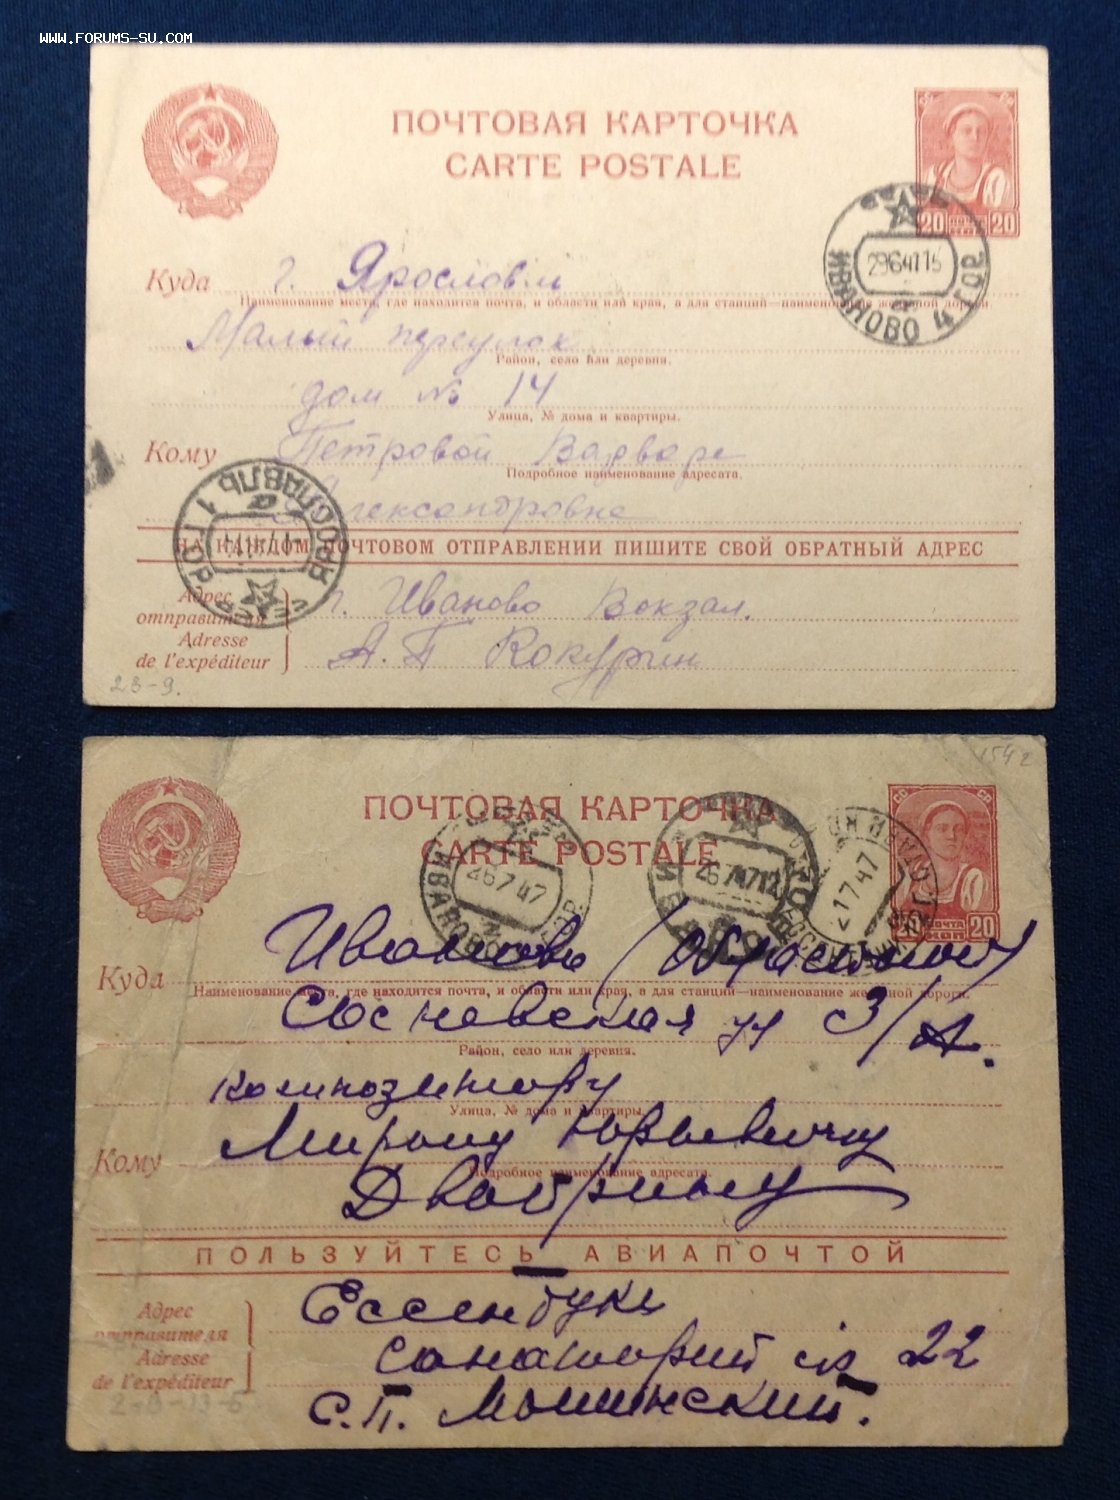 WWW.FORUMS-SU.COM
ПОЧТОВАЯ КАРТОЧКА
CARTE POSTALE
20 ПОЧТА 20
29641 15
ИВАНОВО 4 ГОР
Куда г. Ярославль
Наименование места, где находится почта, и области или края, а для станций—наименование железной дороги.
Малый переулок
Район, село или деревня.
дом № 14
Улица, № дома и квартиры.
Кому Петровой Варваре
Подробное наименование адресата.
Александровне
ЯРОСЛАВЛЬ 1 ГОР
НА КАЖДОМ ПОЧТОВОМ ОТПРАВЛЕНИИ ПИШИТЕ СВОЙ ОБРАТНЫЙ АДРЕС
Адрес отправителя г. Иваново Вокзал.
Adresse de l'expéditeur А.П Кокурин
23-9.
1542
ПОЧТОВАЯ КАРТОЧКА
CARTE POSTALE
20 ПОЧТА КОП 20
ИВАНОВО 26 7 47
26 7 47 12
21 7 47
Куда Иваново (областной)
Наименование места, где находится почта, и области или края, а для станций—наименование железной дороги.
Сосневская ул 3/
Район, село или деревня.
композитору
Улица, № дома и квартиры.
Кому Мирону Юрьевичу
Подробное наименование адресата.
ПОЛЬЗУЙТЕСЬ АВИАПОЧТОЙ
Адрес отправителя Ессентуки
Adresse de l'expéditeur санаторий 22
С.П.